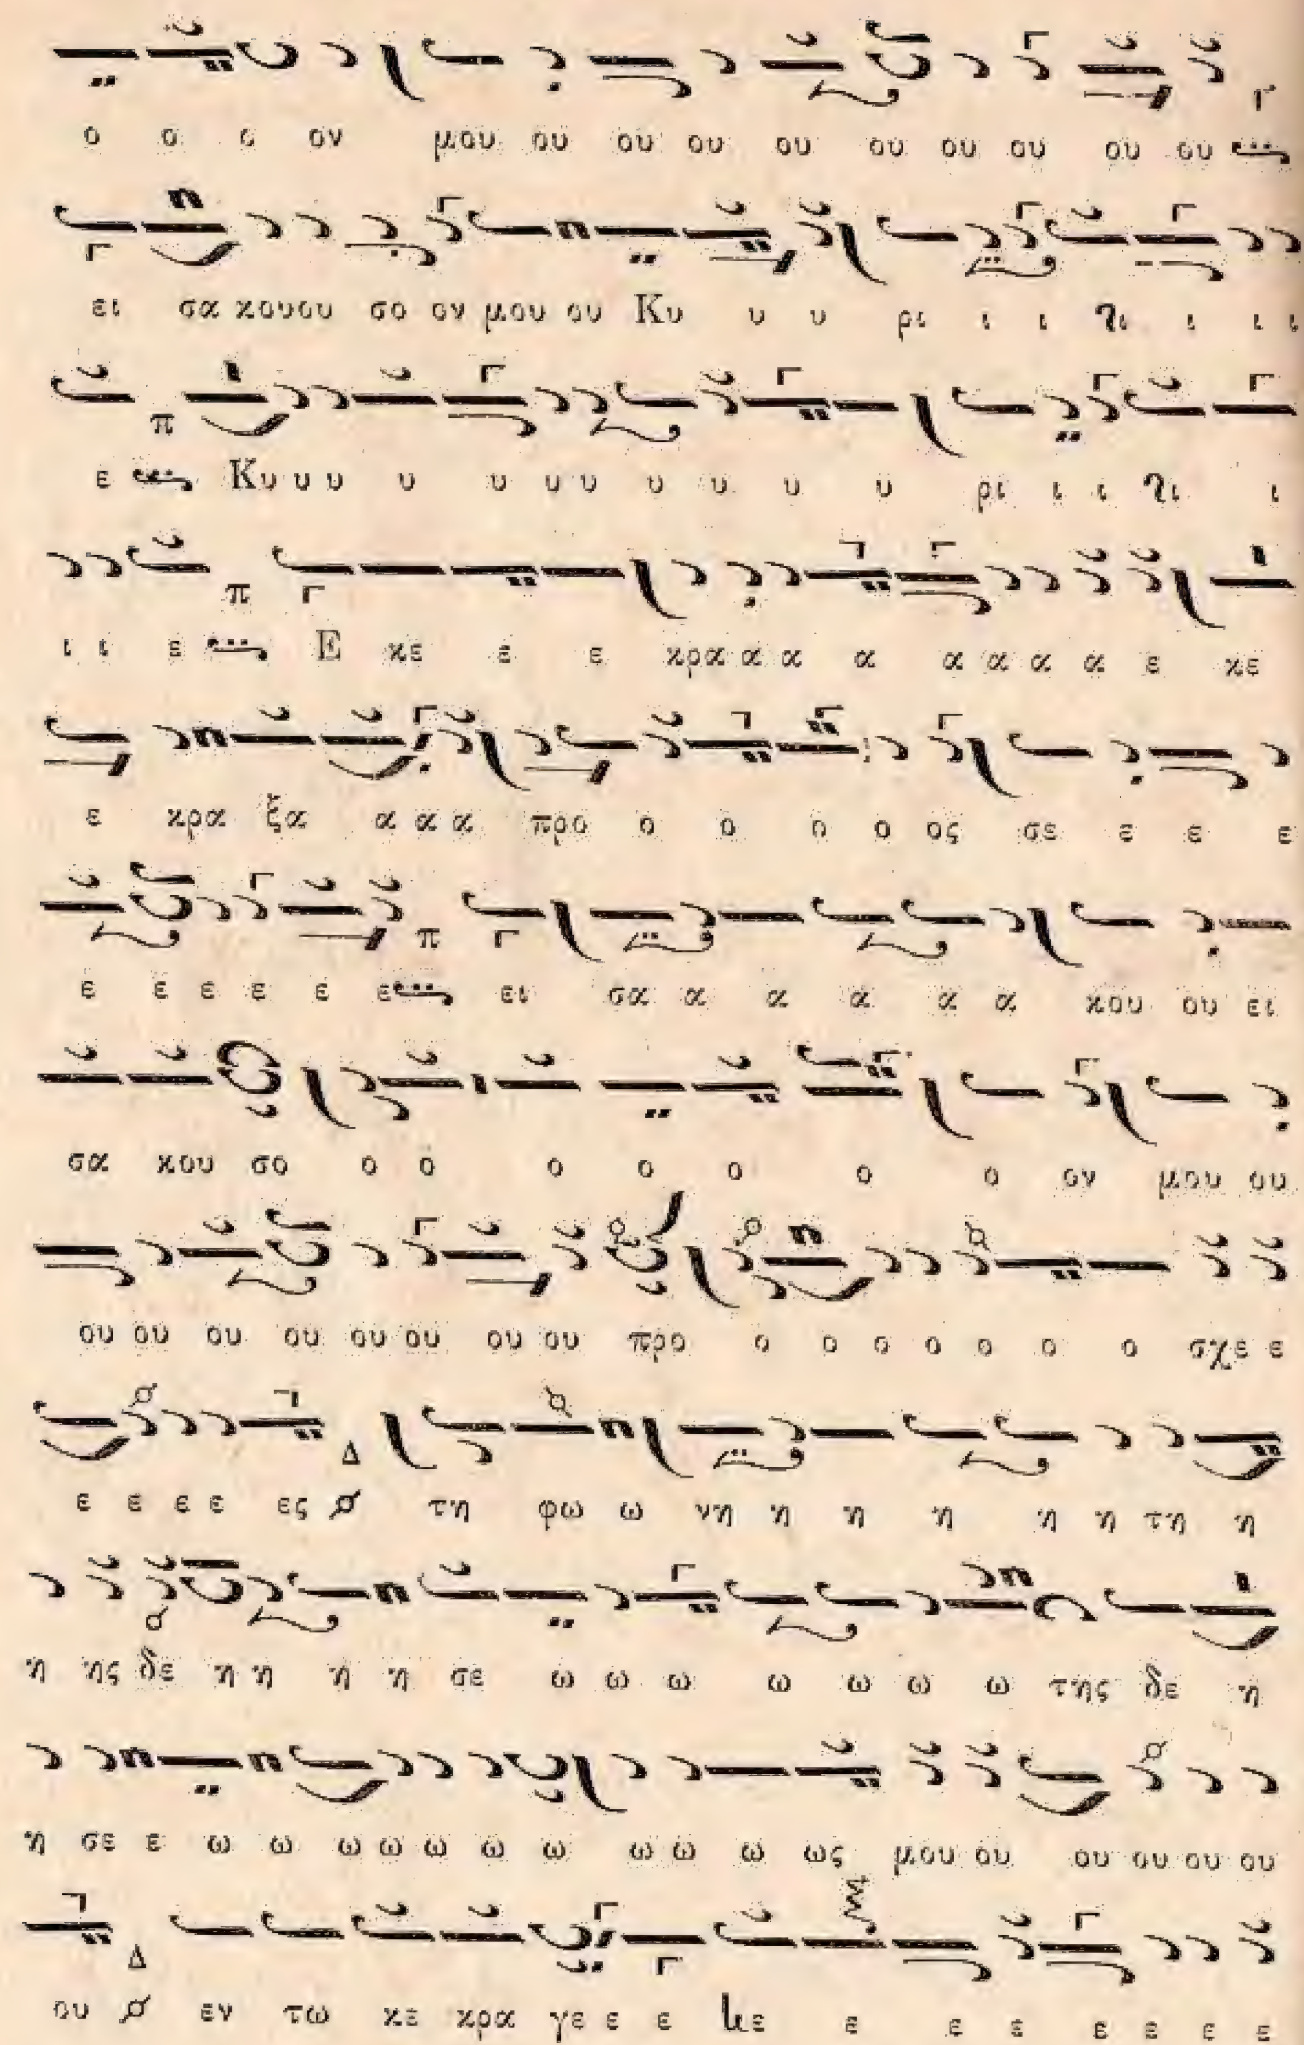 ο ο ο ον μου ου ου ου ου ου ου ου ου ου
ει σα κουου σο ον μου ου Κυ υ υ ρι ι ι χι ι ι ι
ε Κυ υ υ υ υ υ υ υ υ υ υ ρι ι ι χι ι
ι ι ε Ε κε ε ε κρα α α α α α α α ε κε
ε κρα ξα α α α προ ο ο ο ο ος σε ε ε ε
ε ε ε ε ε ε ει σα α α α α α κου ου ει
σα κου σο ο ο ο ο ο ο ο ον μου ου
ου ου ου ου ου ου ου ου προ ο ο ο ο ο ο ο σχε ε
ε ε ε ε ες τη φω ω νη η η η η η τη η
η ης δε η η η η σε ω ω ω ω ω ω ω της δε η
η σε ε ω ω ω ω ω ω ω ω ω ω ως μου ου ου ου ου ου
ου εν τω κε κρα γε ε ε ε ε ε ε ε ε ε